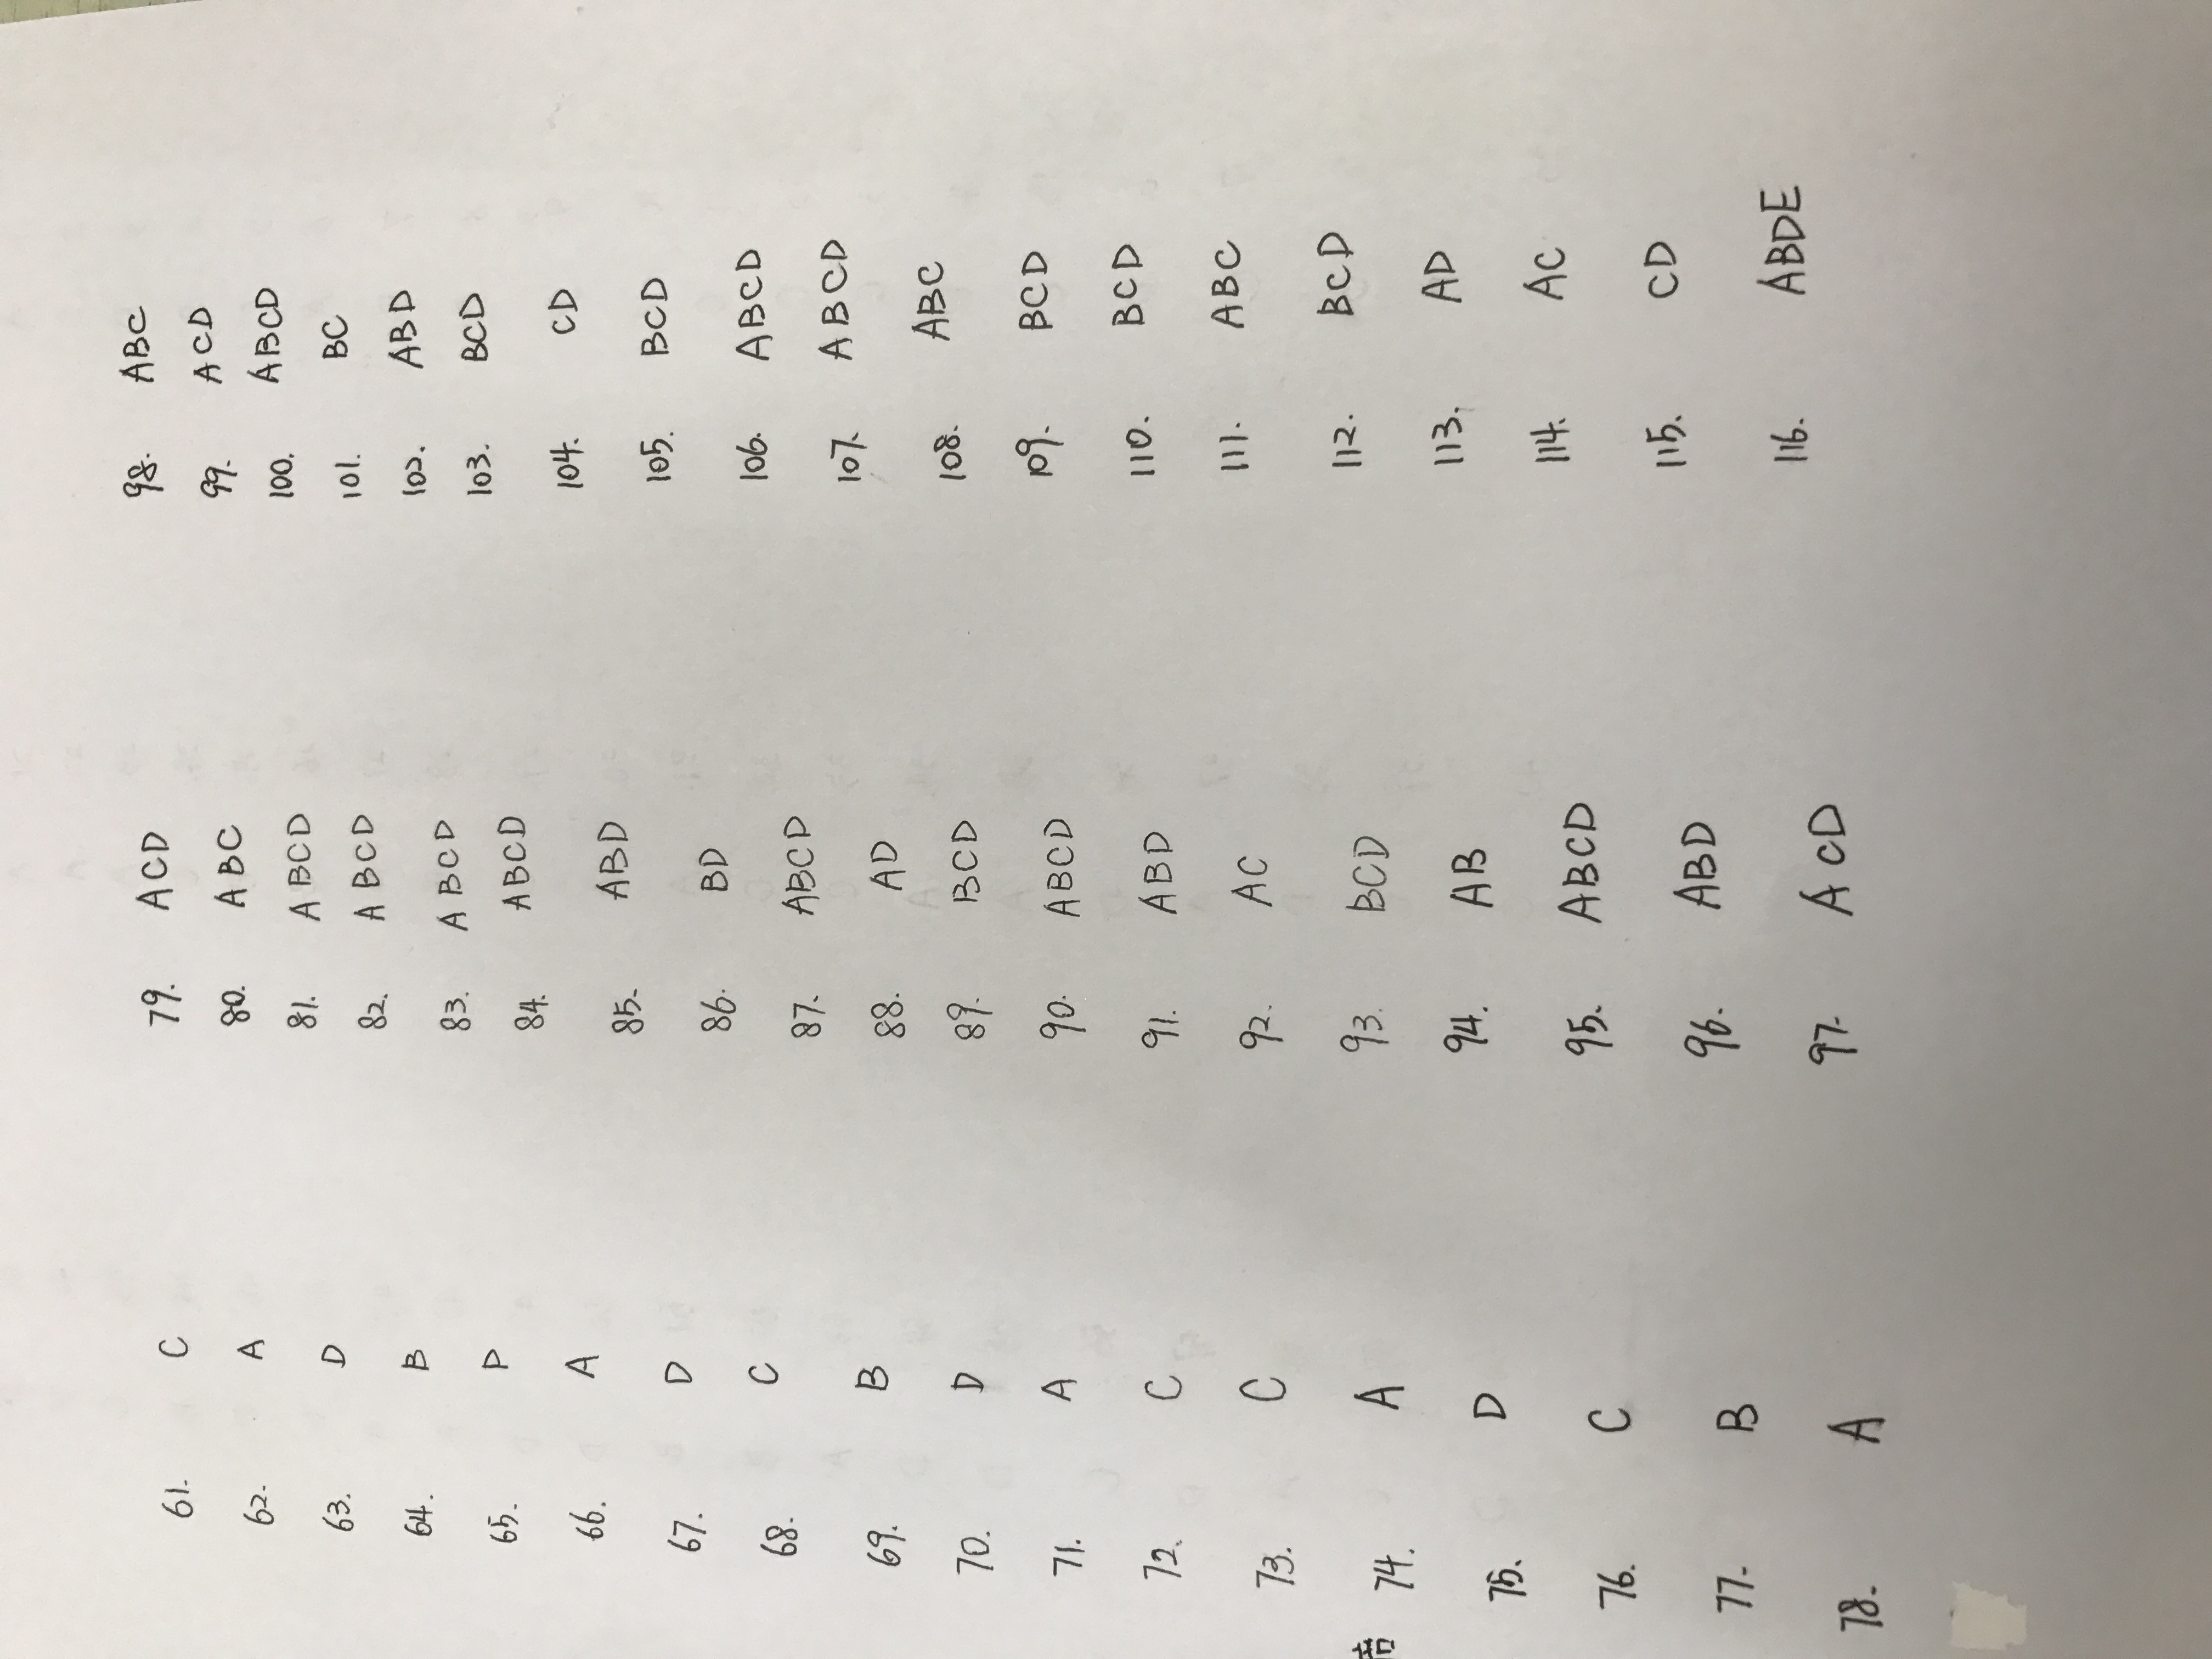 61. C
62. A
63. D
64. B
65. D
66. A
67. D
68. C
69. B
70. D
71. A
72. C
73. C
74. A
75. D
76. C
77. B
78. A
79. ACD
80. ABC
81. ABCD
82. ABCD
83. ABCD
84. ABCD
85. ABD
86. BD
87. ABCD
88. AD
89. BCD
90. ABCD
91. ABD
92. AC
93. BCD
94. AB
95. ABCD
96. ABD
97. ACD
98. ABC
99. ACD
100. ABCD
101. BC
102. ABD
103. BCD
104. CD
105. BCD
106. ABCD
107. ABCD
108. ABC
109. BCD
110. BCD
111. ABC
112. BCD
113. AD
114. AC
115. CD
116. ABDE